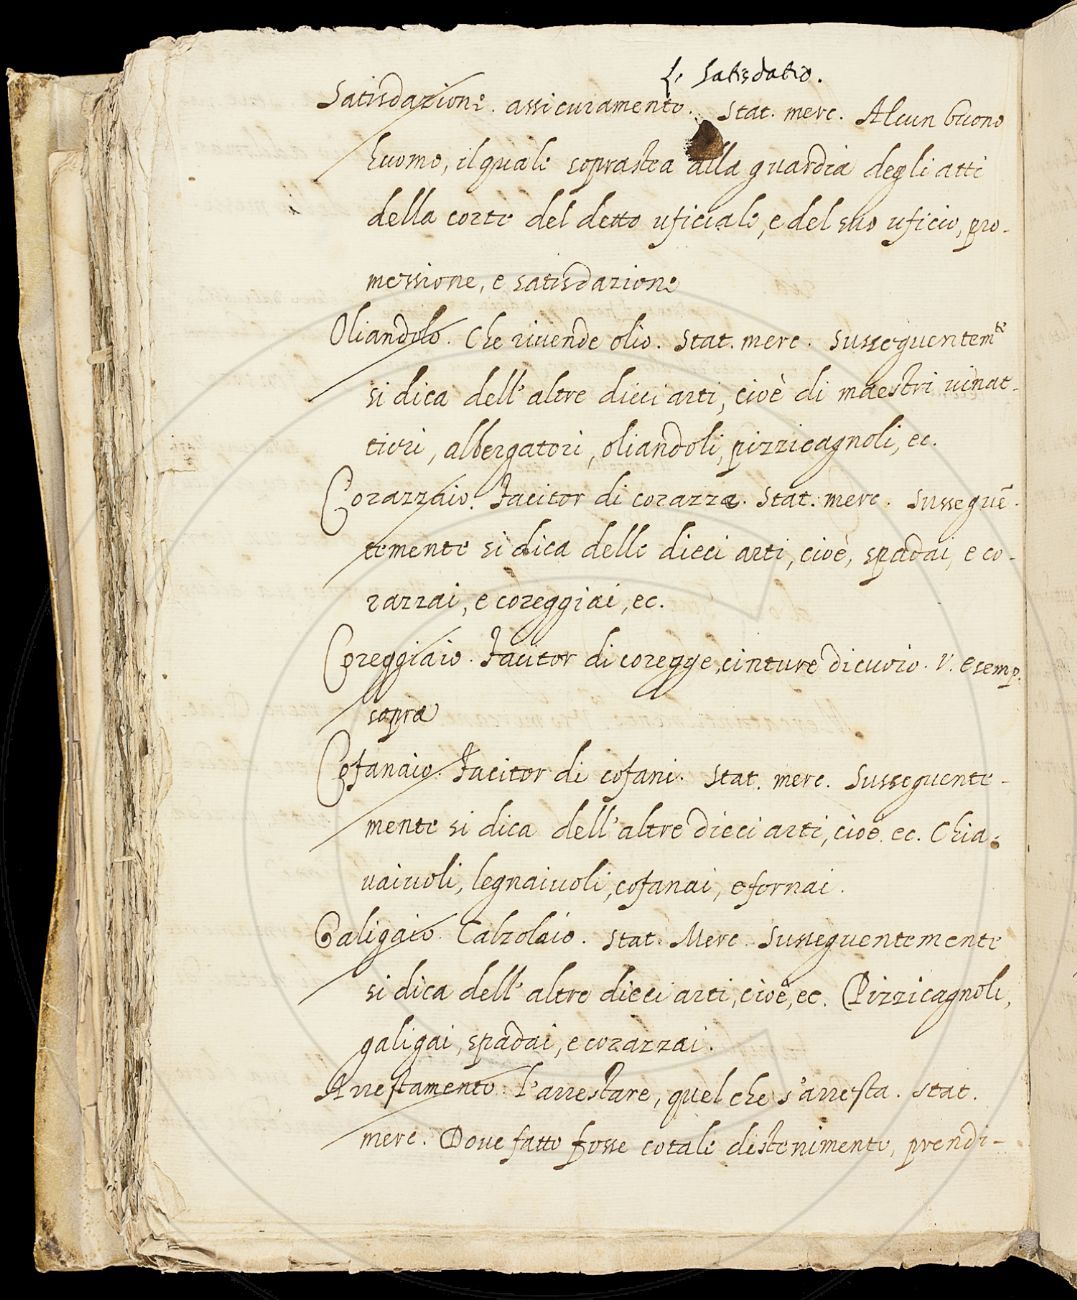 L. Satisdatio.
Satisdazione. assicuramento. Stat. merc. Alcun buono
huomo, il quale soprastea alla guardia degli atti
della corte del detto uficiale, e del suo uficio, pro-
messione, e satisdazione
Oliandolo. Che rivende olio. Stat. merc. Susseguentemte
si dica dell'altre dieci arti, cioè di maestri vinat-
tieri, albergatori, oliandoli, pizzicagnoli, ec.
Corazzaio. Facitor di corazze. Stat. merc. Sussegue͂-
temente si dica delle dieci arti, cioè, spadai, e co-
razzai, e coreggiai, ec.
Coreggiaio. Facitor di coregge, cinture di cuoio. V. esemp.
sopra
Cofanaio. Facitor di cofani. Stat. merc. Susseguente-
mente si dica dell'altre dieci arti, cioè ec. Chia-
vaiuoli, legnaiuoli, cofanai, e fornai.
Galigaio. Calzolaio. Stat. Merc. Susseguentemente
si dica dell'altre dieci arti, cioè, ec. Pizzicagnoli,
galigai, spadai, e corazzai.
Arrestamento. L'arrestare, quel che s'arresta. Stat.
merc. Dove fatto fosse cotale distenimento, prendi-